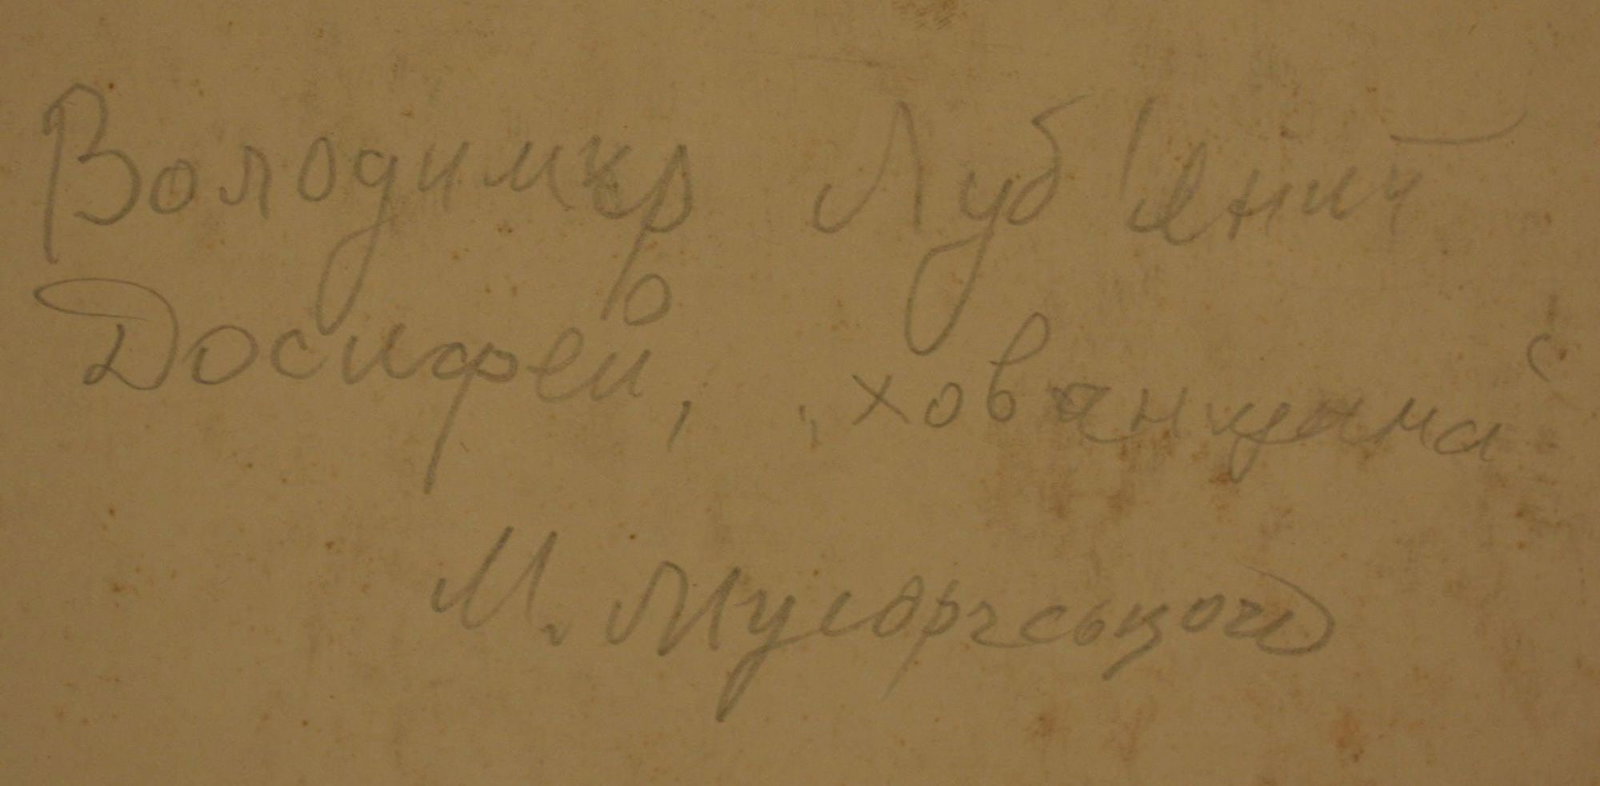 Володимир Луб'яний
Досифей, „хованщина“
М. Мусоргського